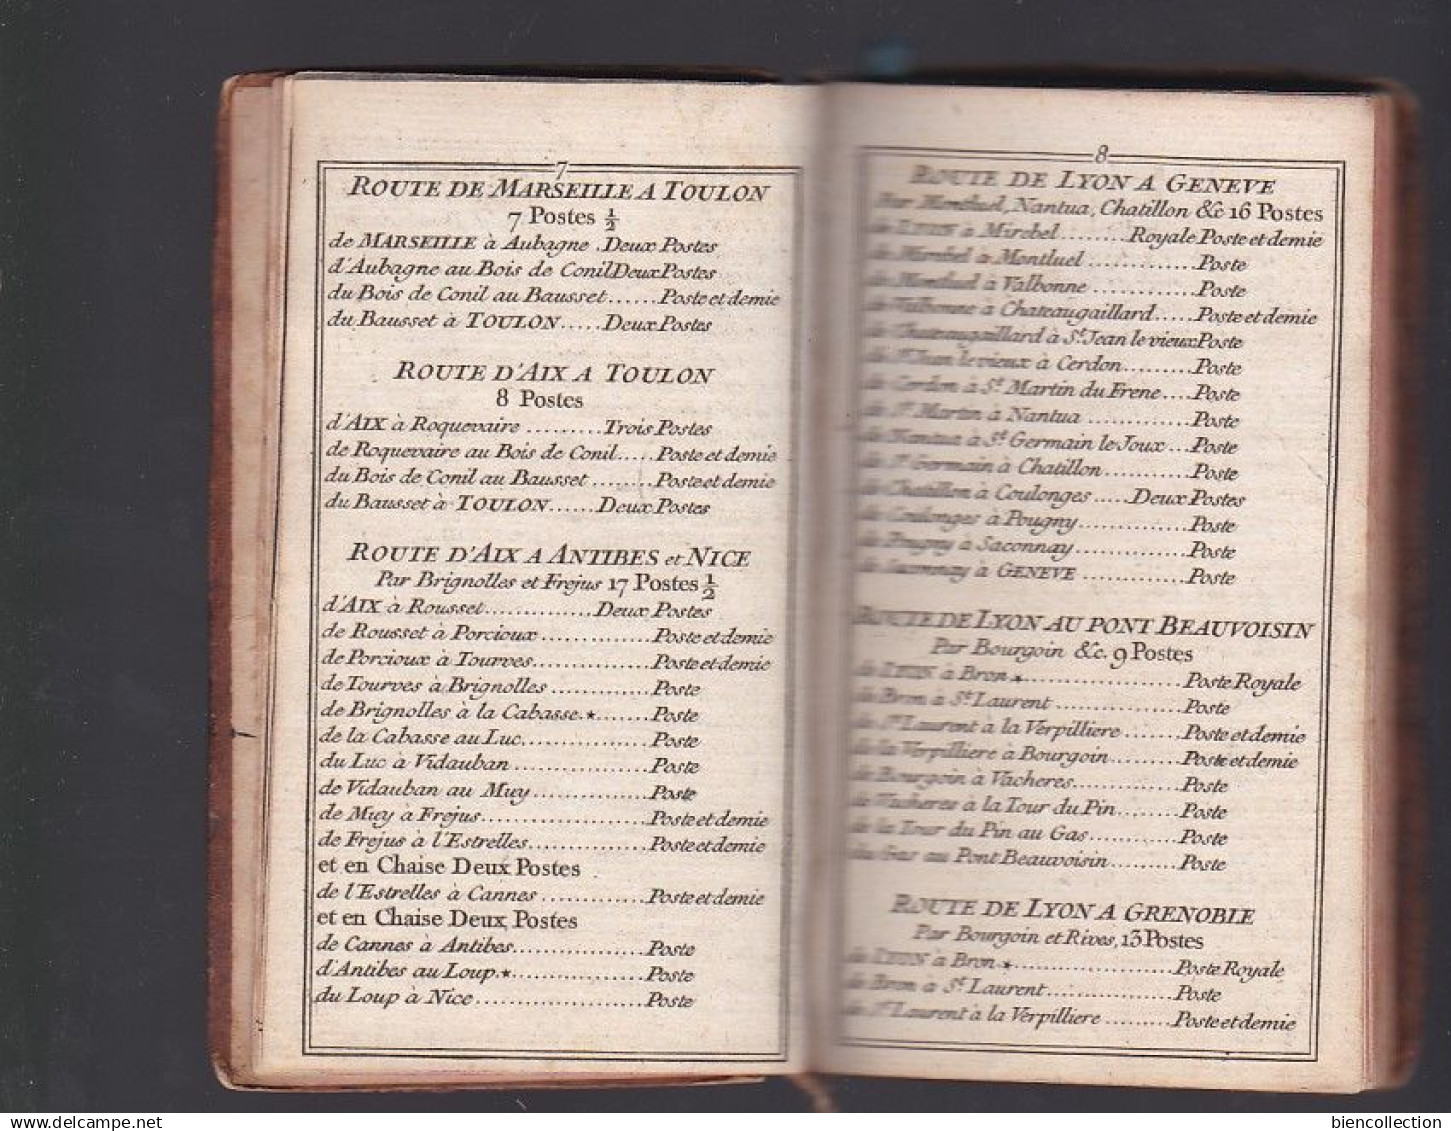 7
ROUTE DE MARSEILLE A TOULON
7 Postes ½
de MARSEILLE à Aubagne .Deux Postes
d'Aubagne au Bois de Conil Deux Postes
du Bois de Conil au Bausset ...... Poste et demie
du Bausset à TOULON ..... Deux Postes
ROUTE D'AIX A TOULON
8 Postes
d'AIX à Roquevaire ......... Trois Postes
de Roquevaire au Bois de Conil ..... Poste et demie
du Bois de Conil au Bausset ........ Poste et demie
du Bausset à TOULON ...... Deux Postes
ROUTE D'AIX A ANTIBES et NICE
Par Brignolles et Frejus 17 Postes ½
d'AIX à Rousset .............. Deux Postes
de Rousset à Porcioux .............. Poste et demie
de Porcioux à Tourves ............... Poste et demie
de Tourves à Brignolles ............. Poste
de Brignolles à la Cabasse.★ ....... Poste
de la Cabasse au Luc ................ Poste
du Luc à Vidauban ................. Poste
de Vidauban au Muy ............... Poste
de Muy à Frejus ..................... Poste et demie
de Frejus à l'Estrelles ............... Poste et demie
et en Chaise Deux Postes
de l'Estrelles à Cannes ............. Poste et demie
et en Chaise Deux Postes
de Cannes à Antibes ................ Poste
d'Antibes au Loup.★ ................ Poste
du Loup à Nice ..................... Poste
8
ROUTE DE LYON A GENEVE
Par Montluel, Nantua, Chatillon &c 16 Postes
de LYON à Mirebel ........ Royale Poste et demie
de Mirebel à Montluel ............. Poste
de Montluel à Valbonne ............ Poste
de Valbonne à Chateaugaillard ..... Poste et demie
de Chateaugaillard à St. Jean le vieux Poste
de St. Jean le vieux à Cerdon ......... Poste
de Cerdon à St. Martin du Frene .... Poste
de St. Martin à Nantua ............. Poste
de Nantua à St. Germain le Joux ... Poste
de St. Germain à Chatillon ........... Poste
de Chatillon à Coulonges ..... Deux Postes
de Coulonges à Pougny .............. Poste
de Pougny à Saconnay .............. Poste
de Saconnay à GENEVE ............. Poste
ROUTE DE LYON AU PONT BEAUVOISIN
Par Bourgoin &c. 9 Postes
de LYON à Bron ★ .................... Poste Royale
de Bron à St. Laurent ................ Poste
de St. Laurent à la Verpilliere ....... Poste et demie
de la Verpilliere à Bourgoin .......... Poste et demie
de Bourgoin à Vacheres .............. Poste
de Vacheres à la Tour du Pin ........ Poste
de la Tour du Pin au Gas ............ Poste
du Gas au Pont Beauvoisin .......... Poste
ROUTE DE LYON A GRENOBLE
Par Bourgoin et Rives, 13 Postes
de LYON à Bron ★ .................... Poste Royale
de Bron à St. Laurent ................ Poste
de St. Laurent à la Verpilliere ......... Poste et demie
delcampe.net
biencollection